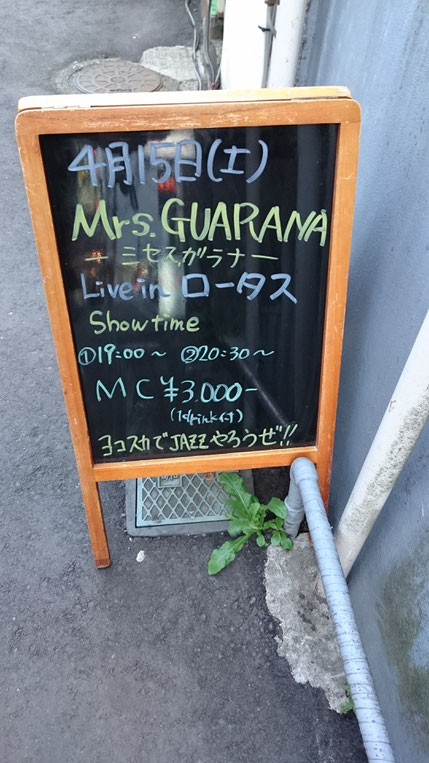 4月15日(土)
Mrs. GUARANA
ーミセスガラナー
Live in ロータス
Show time
①19:00〜 ②20:30〜
MC ¥3,000-
(1drink付)
ヨコスカでJAZZやろうぜ!!